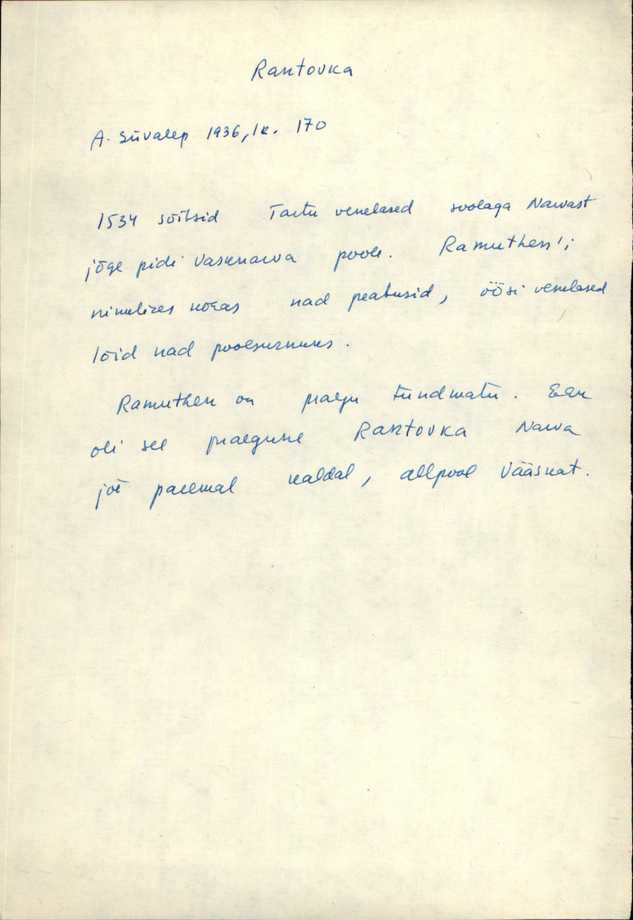 Rantovka
A. Süvalep 1936, lk. 170
1534 sõitsid Tartu venelased soolaga Narvast
jõge pidi Vasknarva poole. Ramuthen'i
nimelises kohas nad peatusid, öösi venelased
lõid nad poolsurnuks.
Ramuthen on praegu tundmatu. Ehk
oli see praegune Rantovka Narva
jõe paremal kaldal, allpool Vääskat.